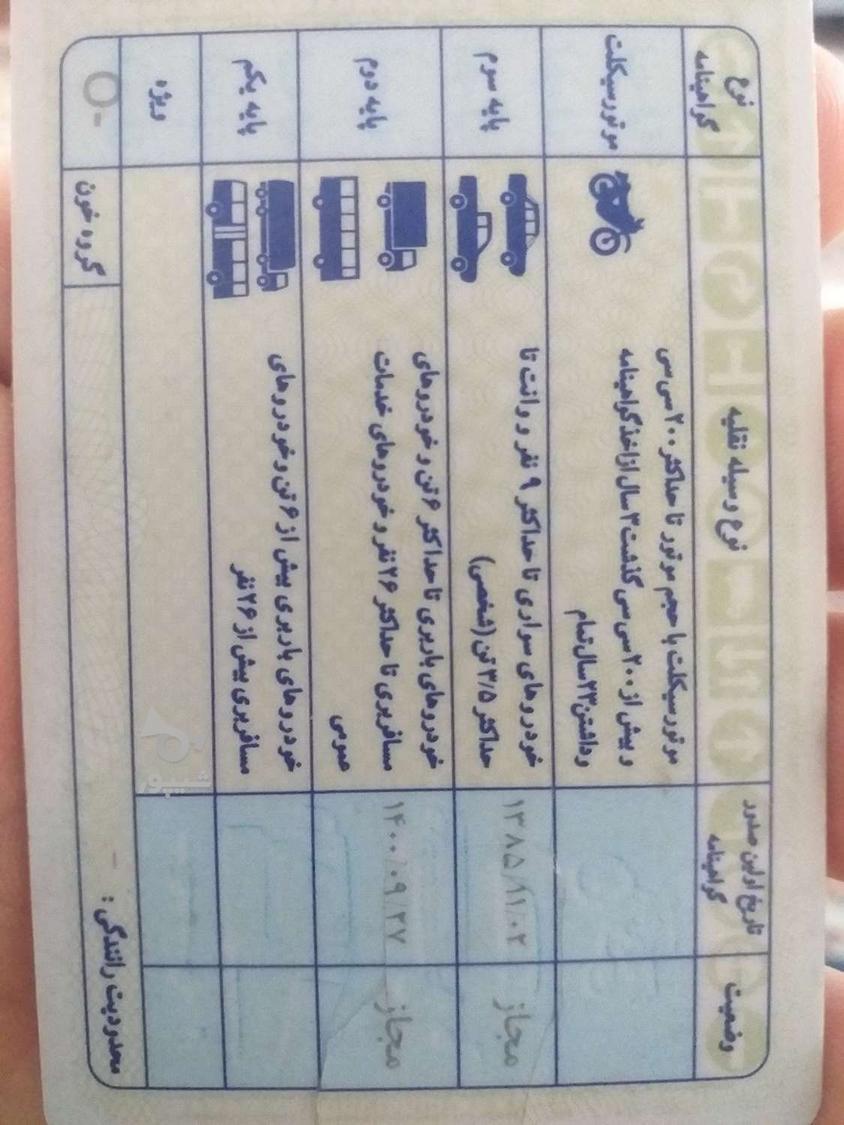 نوع گواهینامه
نوع وسیله نقلیه
تاریخ اولین صدور گواهینامه
وضعیت
موتورسیکلت
موتورسیکلت با حجم موتور تا حداکثر ۲۰۰ سی سی
و بیش از ۲۰۰ سی سی گذشت ۳ سال از اخذ گواهینامه
و داشتن ۲۳ سال تمام
پایه سوم
خودروهای سواری تا حداکثر ۹ نفر و وانت تا
حداکثر ۳/۵ تن (شخصی)
۱۳۸۵/۱۱/۰۲
مجاز
پایه دوم
خودروهای باربری تا حداکثر ۶ تن و خودروهای
مسافربری تا حداکثر ۲۶ نفر و خودروهای خدمات
عمومی
۱۴۰۰/۰۹/۲۷
مجاز
پایه یکم
خودروهای باربری بیش از ۶ تن و خودروهای
مسافربری بیش از ۲۶ نفر
ویژه
شیپور
O-
گروه خون
محدودیت رانندگی : -